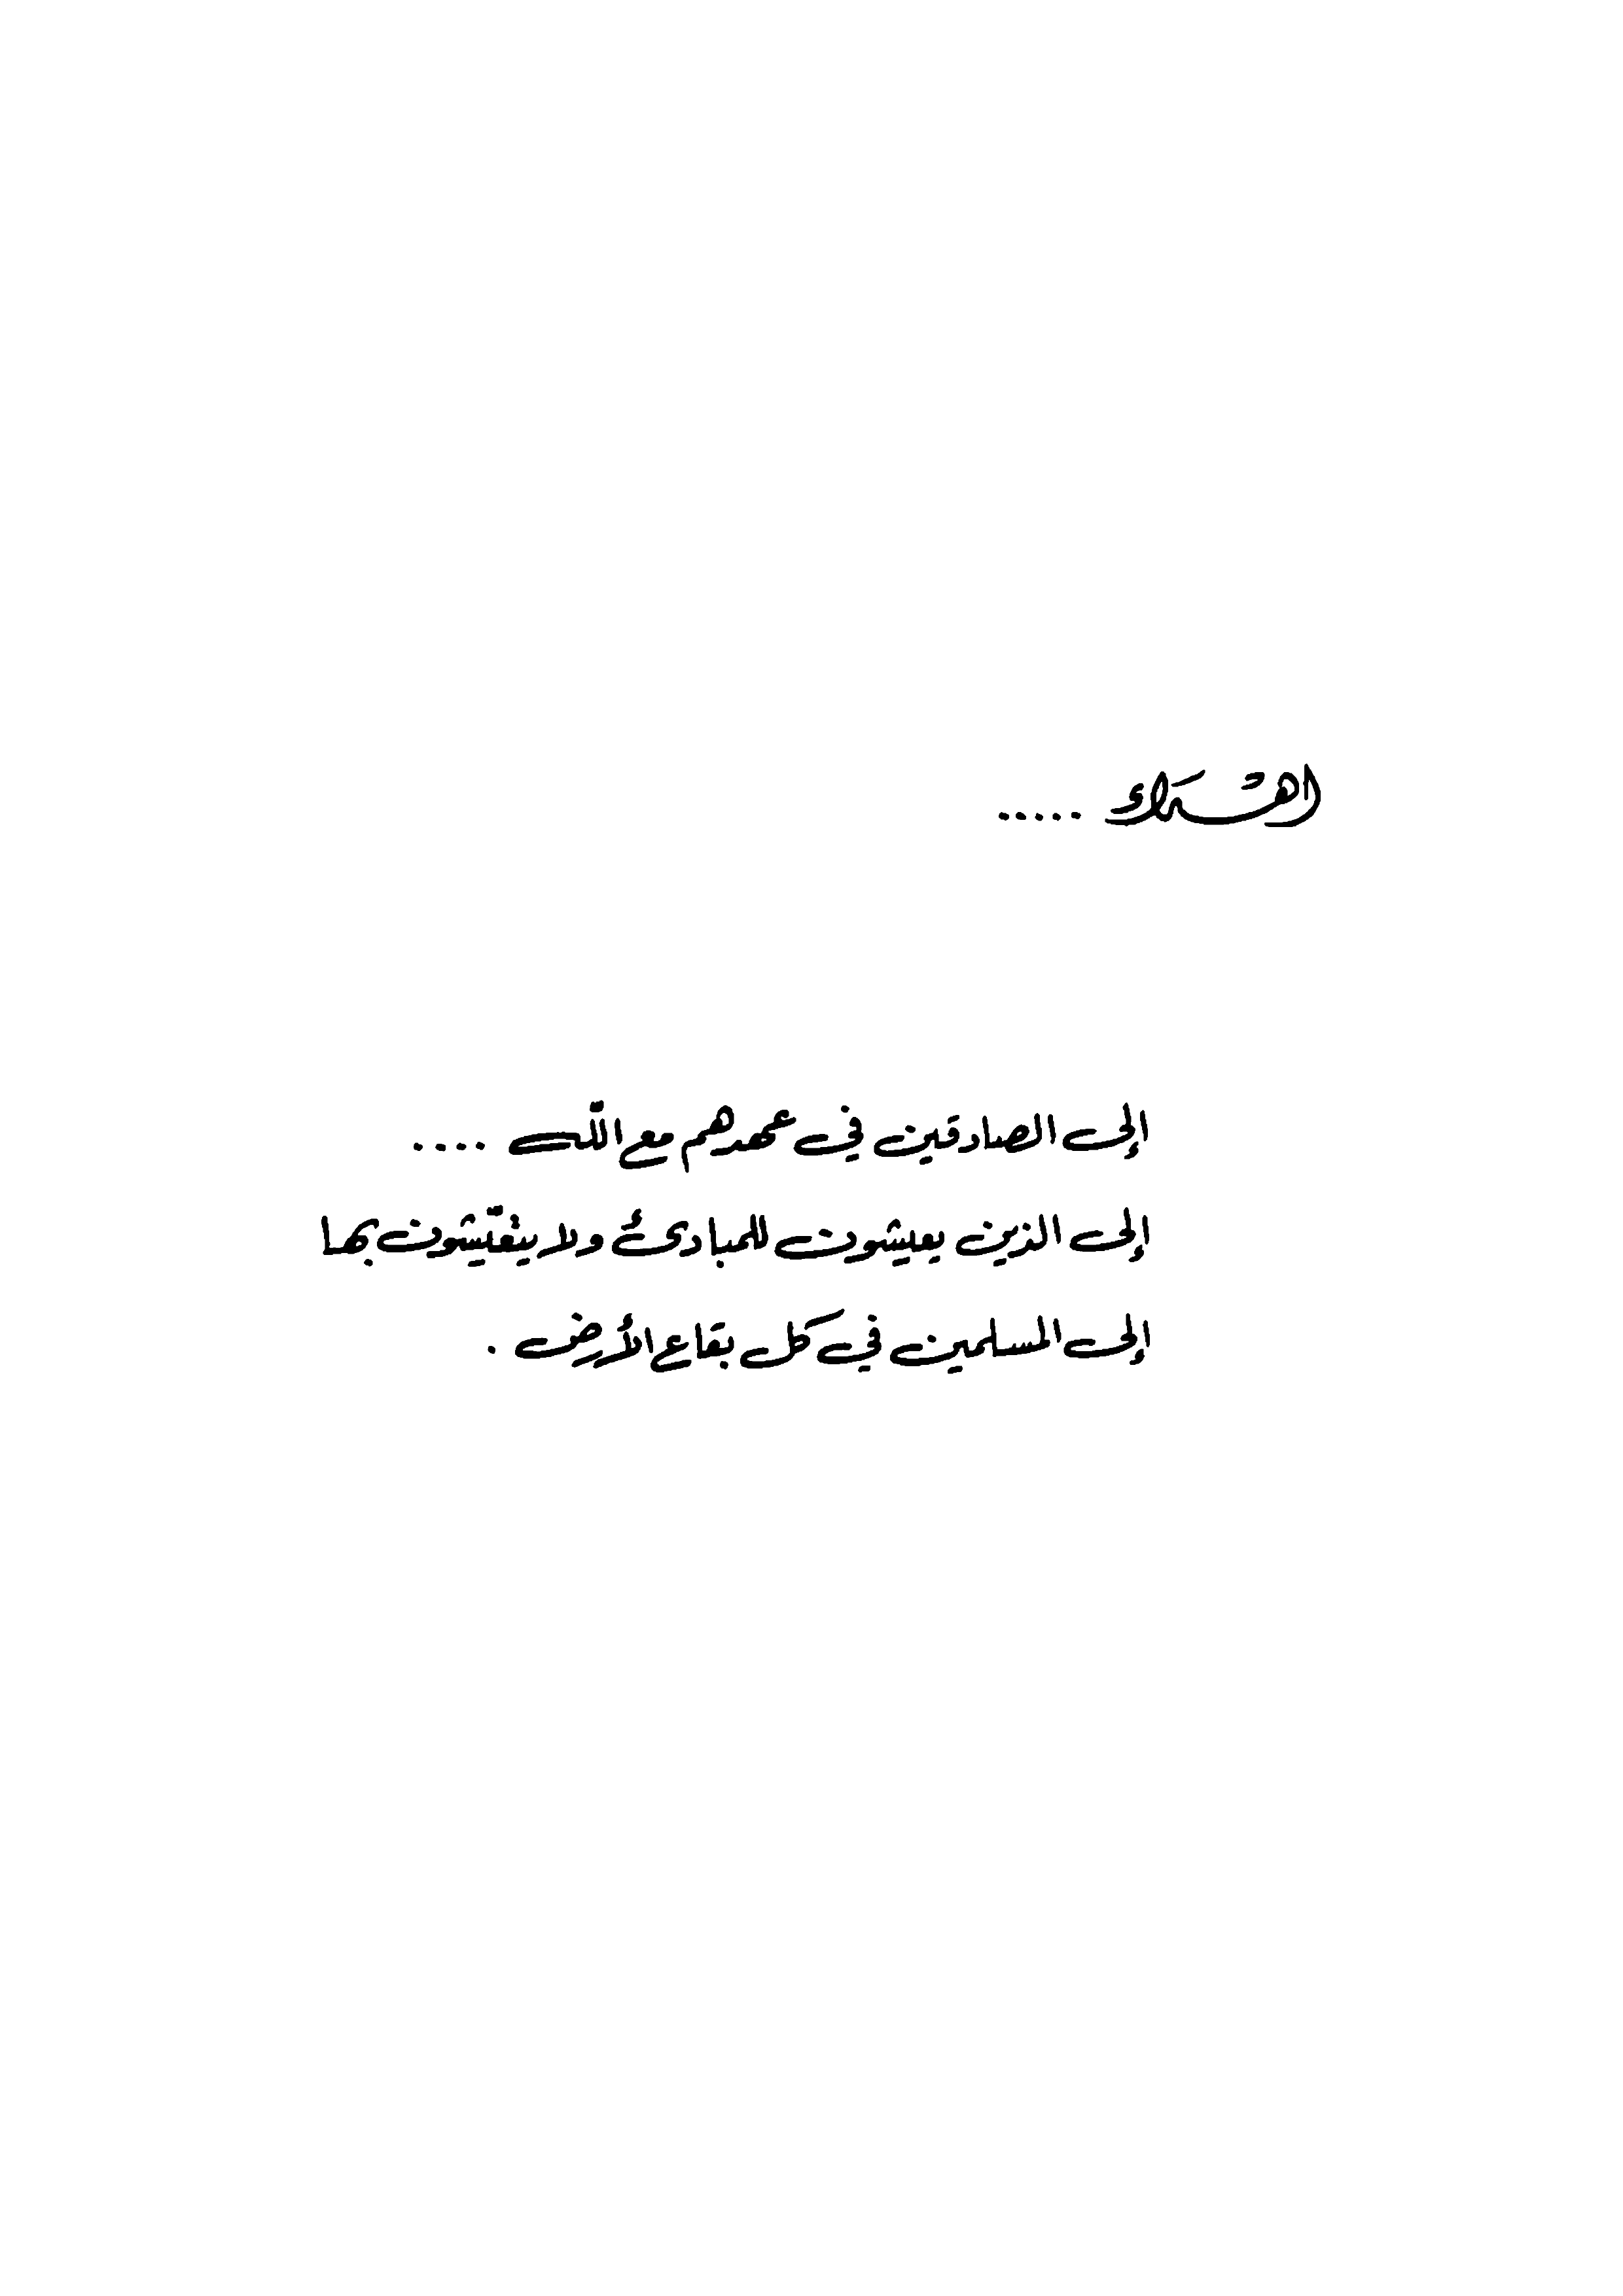 اهداء .....
إلى الصادقين في عهدهم مع الله ....
إلى الذين يعيشون للمبادئ ولا يتعيشون بها
إلى المسلمين في كل بقاع الأرض .